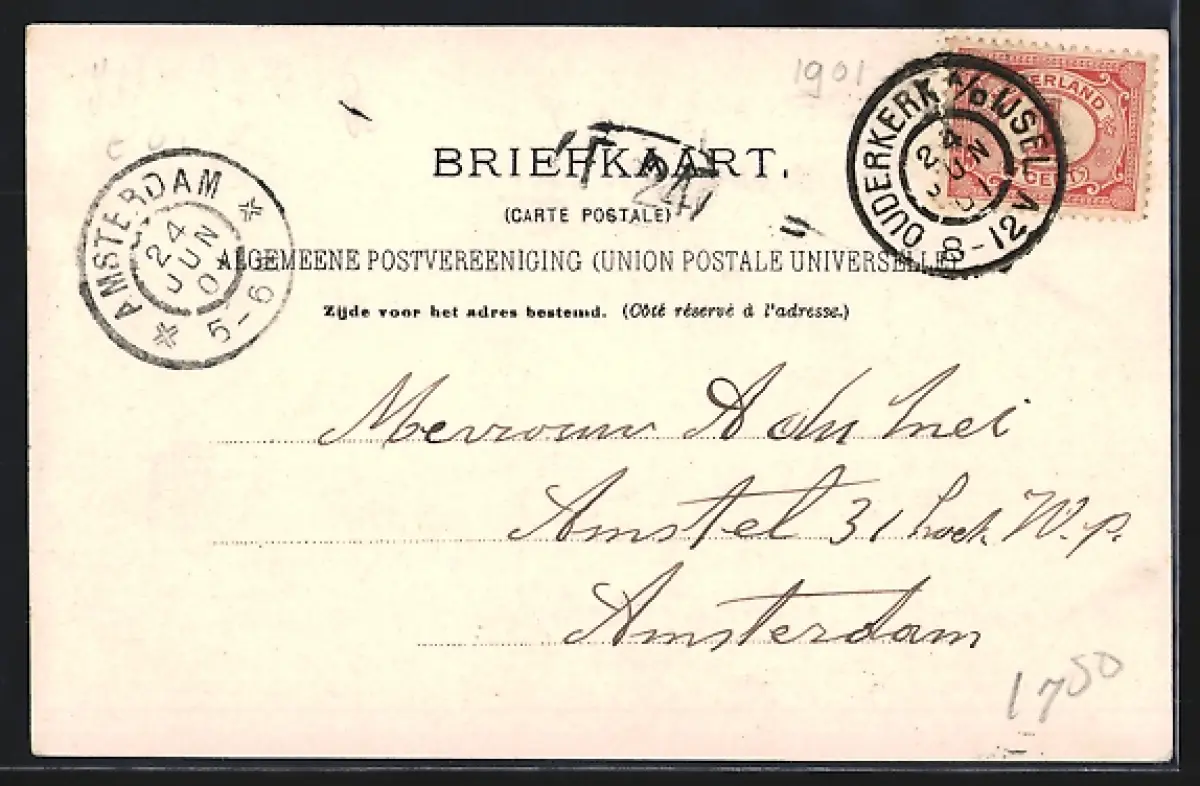 1901
NEDERLAND
CENT
OUDERKERK A/D IJSEL
24 JUN 01
8-12V
BRIEFKAART.
(CARTE POSTALE)
ALGEMEENE POSTVEREENIGING (UNION POSTALE UNIVERSELLE)
Zijde voor het adres bestemd. (Côté réservé à l'adresse.)
AMSTERDAM
24 JUN 01
5-6
Mevrouw A
Amstel 31 hoek W.p.
Amsterdam
1750